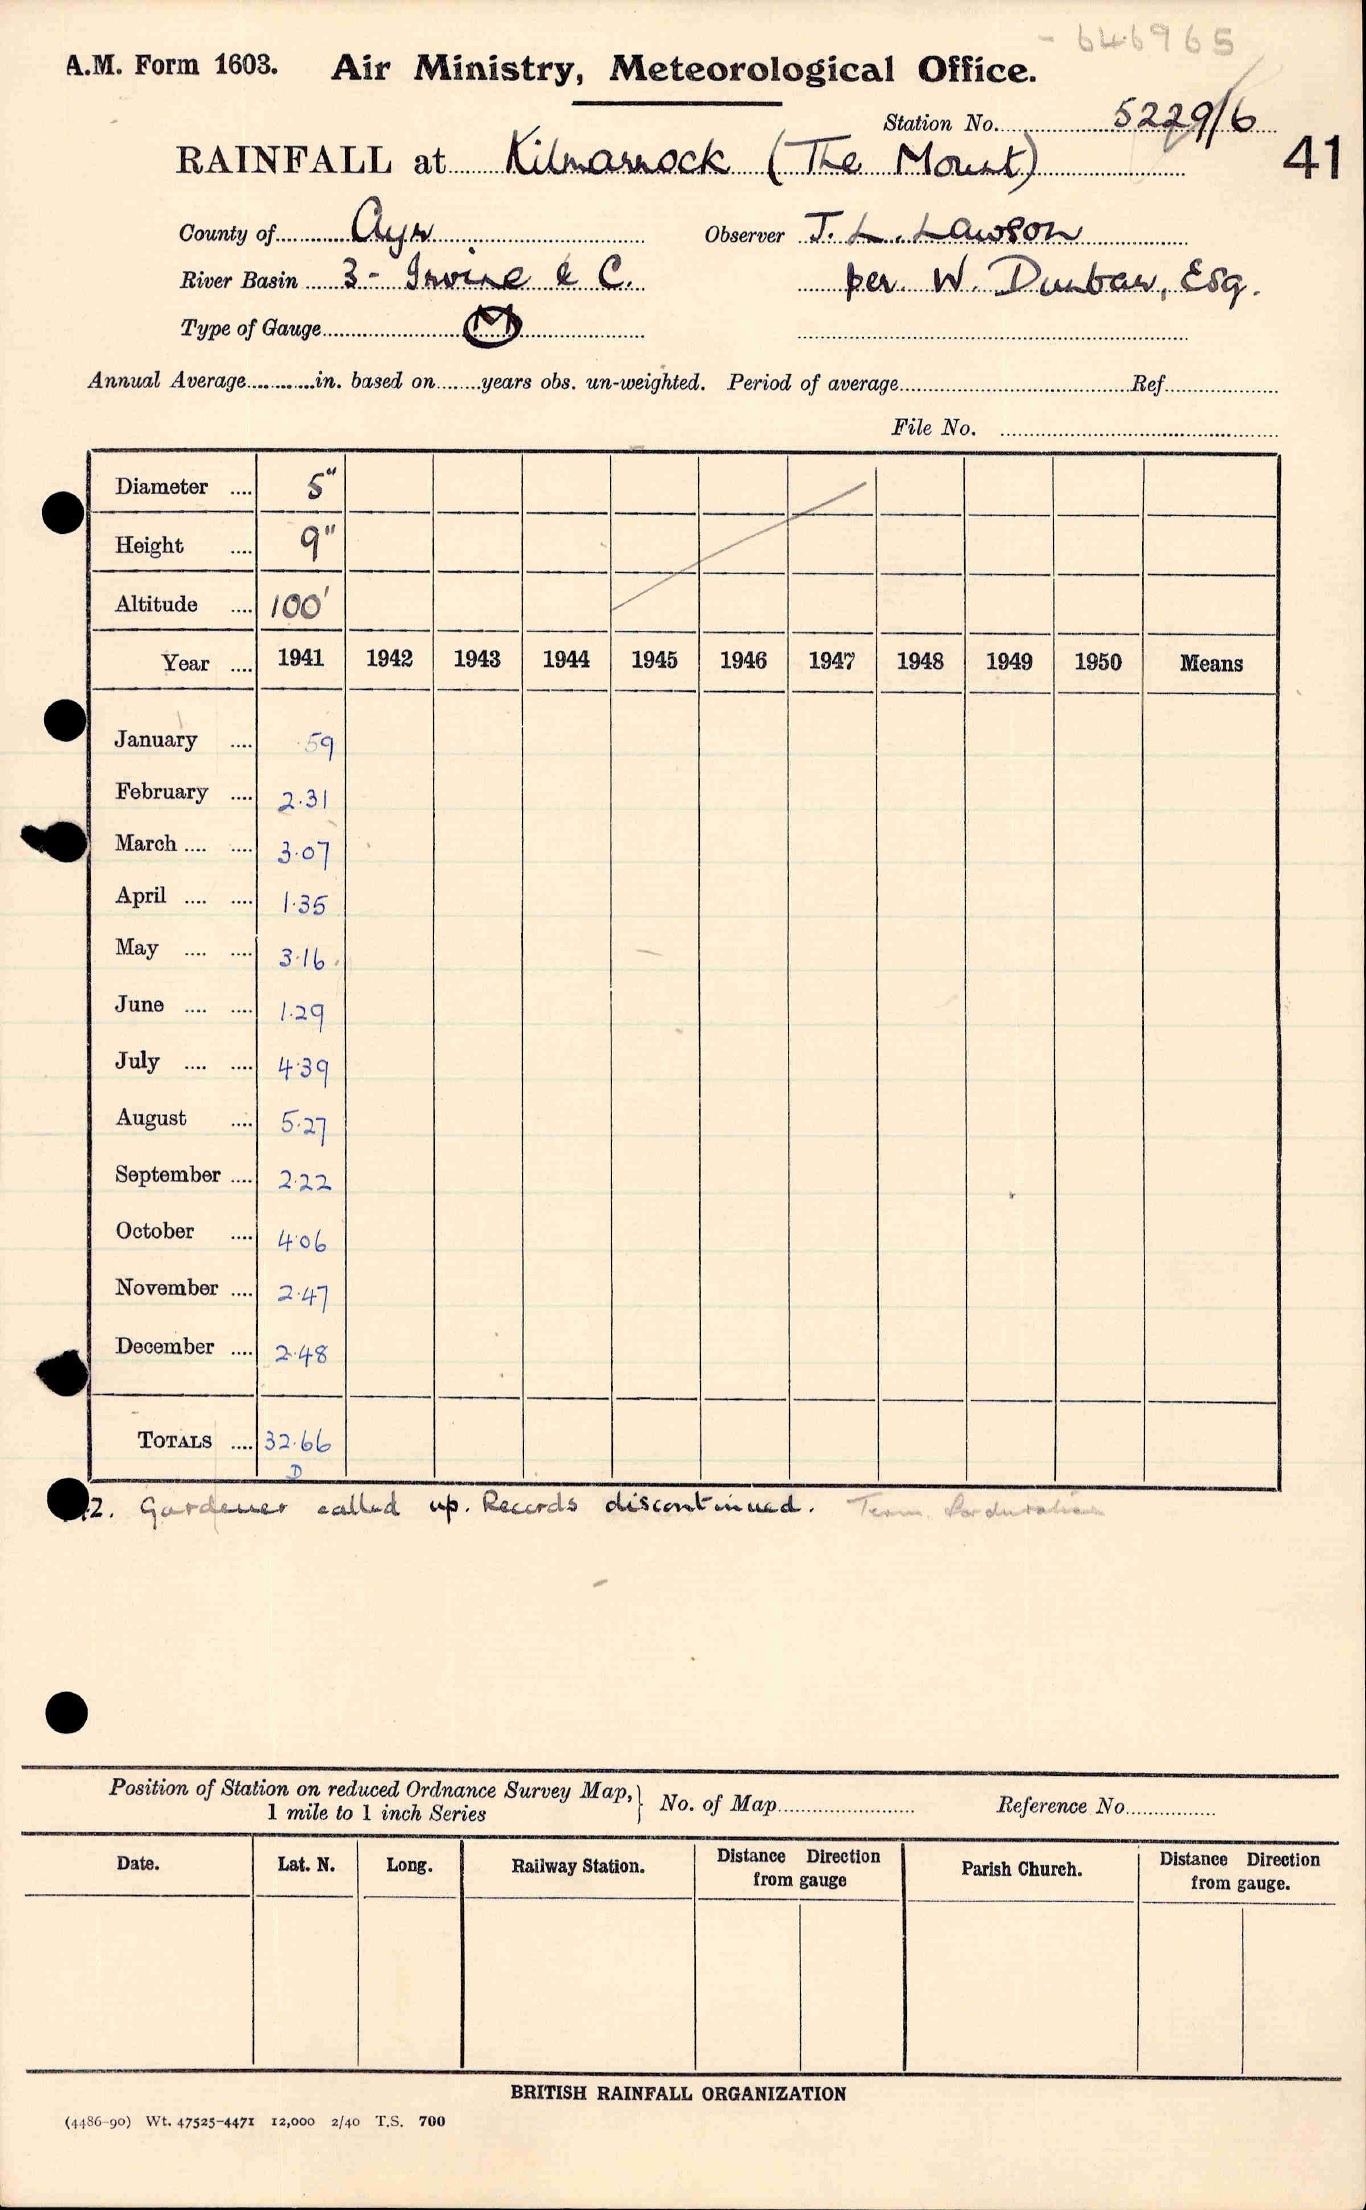 - 646965
A.M. Form 1603. Air Ministry, Meteorological Office.
Station No. 5229/6
RAINFALL at Kilmarnock (The Mount) 41
County of Ayr Observer J. L. Lawson
River Basin 3 - Irvine & C. per. W. Dunbar, Esq.
Type of Gauge M
Annual Average in. based on years obs. un-weighted. Period of average Ref
File No.
Diameter 5"
Height 9"
Altitude 100'
Year 1941 1942 1943 1944 1945 1946 1947 1948 1949 1950 Means
January ·59
February 2.31
March 3.07
April 1.35
May 3.16
June 1.29
July 4.39
August 5.27
September 2.22
October 4.06
November 2.47
December 2.48
TOTALS 32.66
D
2. Gardener called up. Records discontinued.
Position of Station on reduced Ordnance Survey Map, 1 mile to 1 inch Series No. of Map Reference No.
Date. Lat. N. Long. Railway Station. Distance Direction from gauge Parish Church. Distance Direction from gauge.
BRITISH RAINFALL ORGANIZATION
(4486-90) Wt. 47525-4471 12,000 2/40 T.S. 700